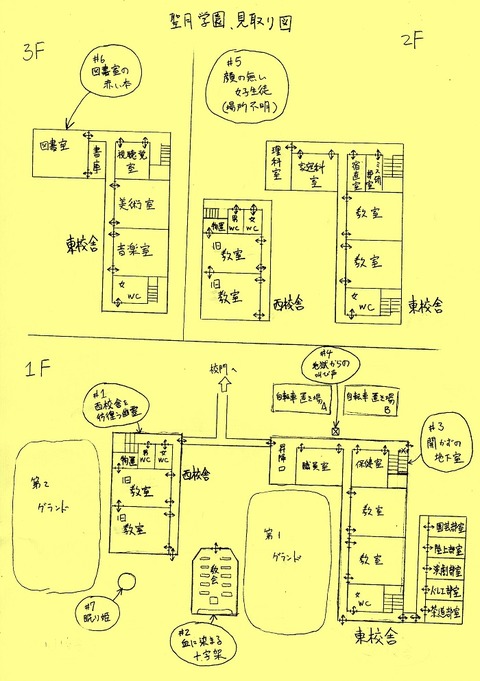 聖月学園、見取り図
3F
2F
#6
図書室の
赤い本
#5
顔の無い
女子生徒
(場所不明)
図書室
書庫
視聴覚室
美術室
音楽室
女
WC
東校舎
物置
男
WC
女
WC
旧
教室
旧
教室
西校舎
理科室
家庭科室
宿直室
ミス研
部室
教室
教室
女
WC
東校舎
1F
校門へ
#4
地獄からの
叫び声
自転車置き場A
自転車置き場
B
#1
西校舎を
彷徨う幽霊
#3
開かずの
地下室
第2
グランド
物置
男
WC
女
WC
旧
教室
旧
教室
西校舎
昇降口
職員室
保健室
教室
教室
女
WC
東校舎
第1
グランド
園芸部室
陸上部室
演劇部室
茶道部室
教会
#7
眠り姫
#2
血に染まる
十字架